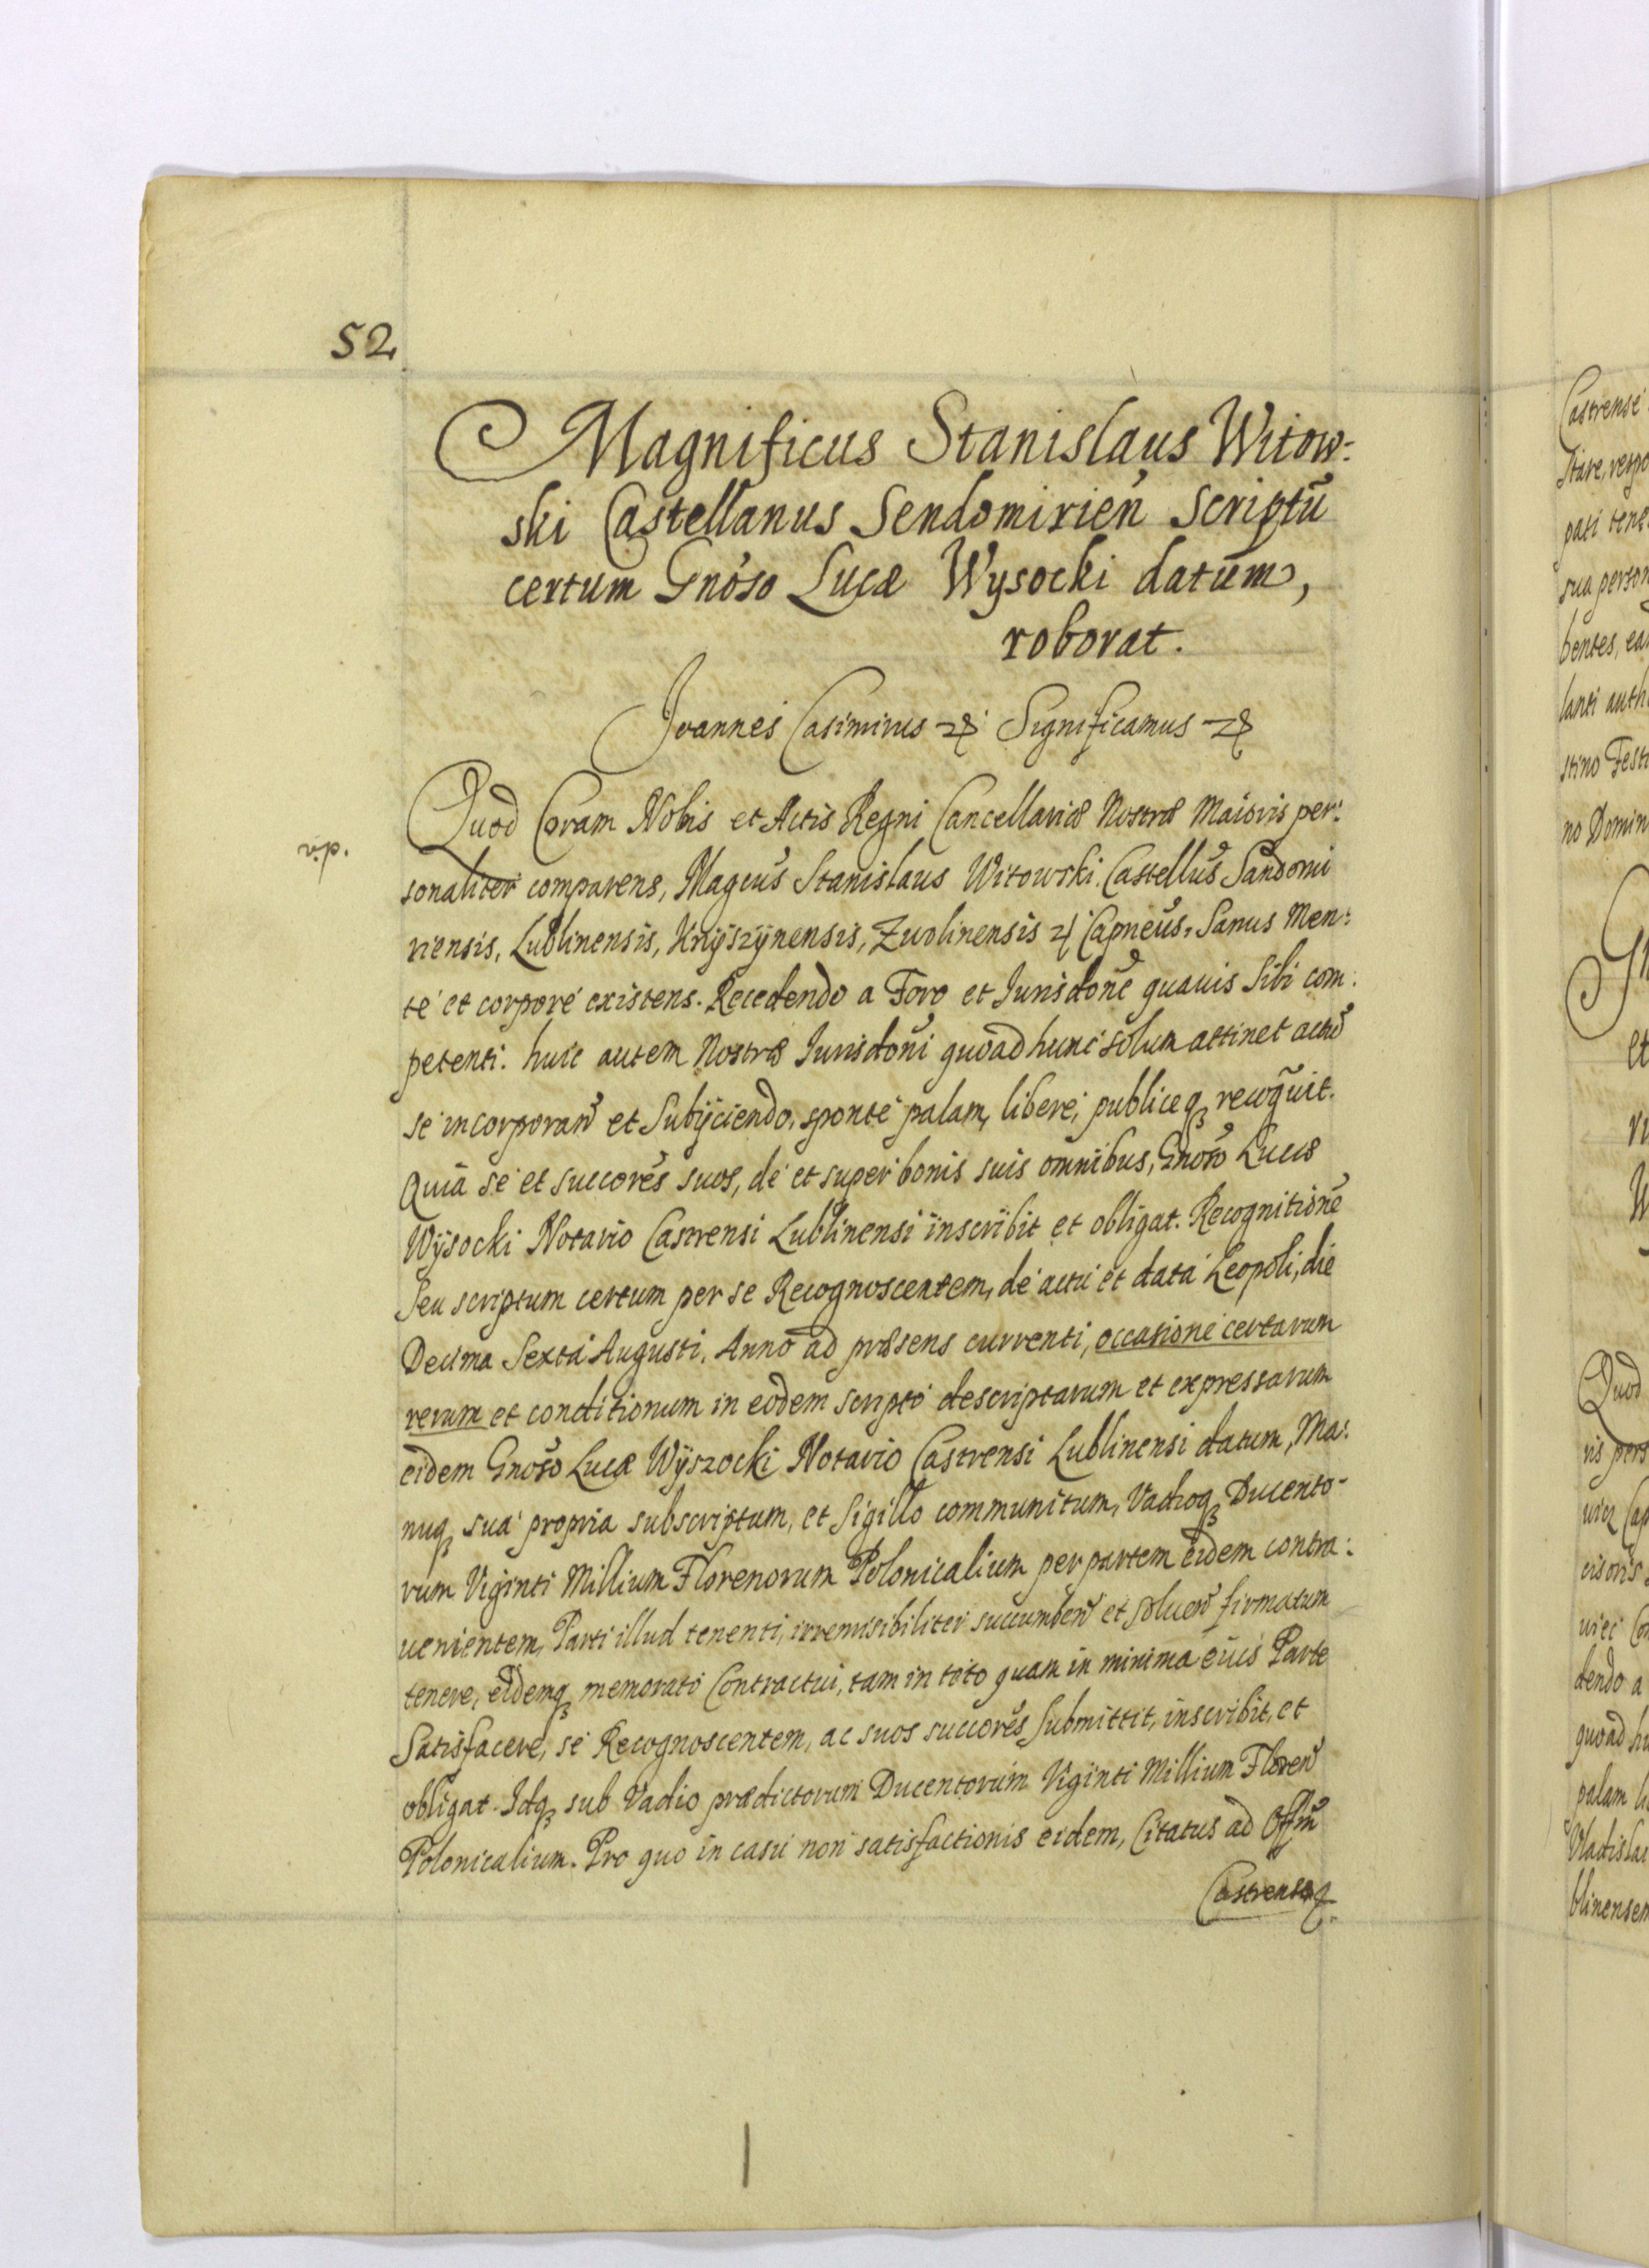 52
Magnificus Stanislaus Witow-
ski Castellanus Sendomirień Scriptū
certum Gnoso Lucæ Wysocki datum,
roborat.
Joannes Casimirus Significamus
Quod Coram Nobis et Actis Regni Cancellariæ Nostræ Maioris per:
sonaliter comparens, Magcus Stanislaus Witowski, Castellus Sandomi
riensis, Lublinensis, Knÿszÿnensis, Zwolinensis Capneus, Sanus Men:
te et corpore existens. Recedendo a Foro et Jurisdone quauis Sibi com:
petenti. huic autem Nostræ Jurisdoni quoad hunc solum attinet actū
se incorporan et Subÿciendo, sponte palam, libere, publiceq recoguit.
Quia se et succores suos, de et super bonis suis omnibus, Gnoso Lucæ
Wÿsocki Notario Castrensi Lublinensi inscribit et obligat. Recognitionē
Seu scriptum certum per se Recognoscentem, de actu et data Leopoli, die
Decima Sexta Augusti, Anno ad præsens currenti, occasione certarum
rerum et conditionum in eodem scripto descriptarum et expressarum
eidem Gnoso Lucæ Wÿszocki Notario Castrensi Lublinensi datum, Ma:
nuq sua propria subscriptum, et Sigillo communitum, Vadioq Ducento-
rum Viginti Millium Florenorum Polonicalium per partem eidem contra:
uenientem, Parti illud tenenti, irremisibiliter succumben et soluen firmatum
tenere, eidemq memorato Contractui, tam in toto quam in minima eius Parte
Satisfacere, se Recognoscentem, ac suos succores submittit, inscribit, et
obligat. Idq sub Vadio prædictorum Ducentorum Viginti Millium Floren
Polonicalium. Pro quo in casu non satisfactionis eidem, Citatus ad Offm
Castrense